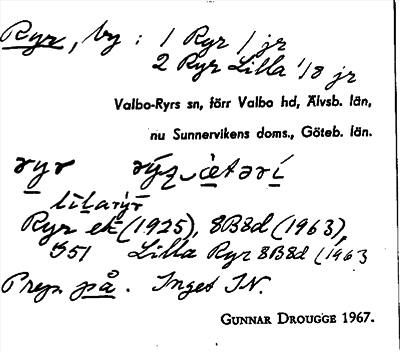 Ryr, by : 1 Ryr 1 jr
2 Ryr Lilla 1/8 jr
Valbo-Ryrs sn, förr Valbo hd, Älvsb. län,
nu Sunnervikens doms., Göteb. län.
ryr
Ryr ek (1925), 8B8d (1963),
851 Lilla Ryr 8B8d (1963
Prep. på. Inget IN.
GUNNAR DROUGGE 1967.